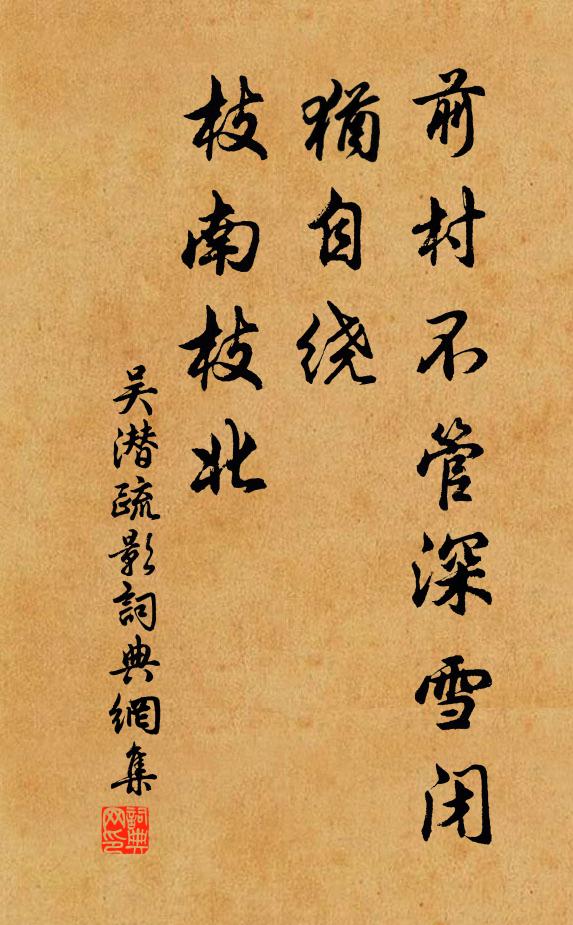 前村不管深雪闭
犹自绕
枝南枝北
吴潜疏影詞典網集
詞典网印